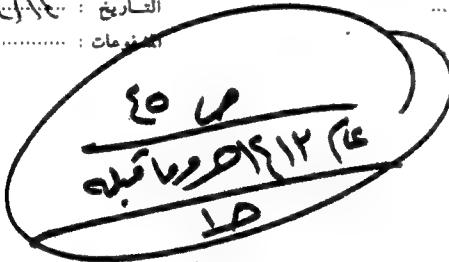 التاريخ :
المرفوعات :
ص ٤٥
عام ١٤١٢هـ وما قبله
ص١